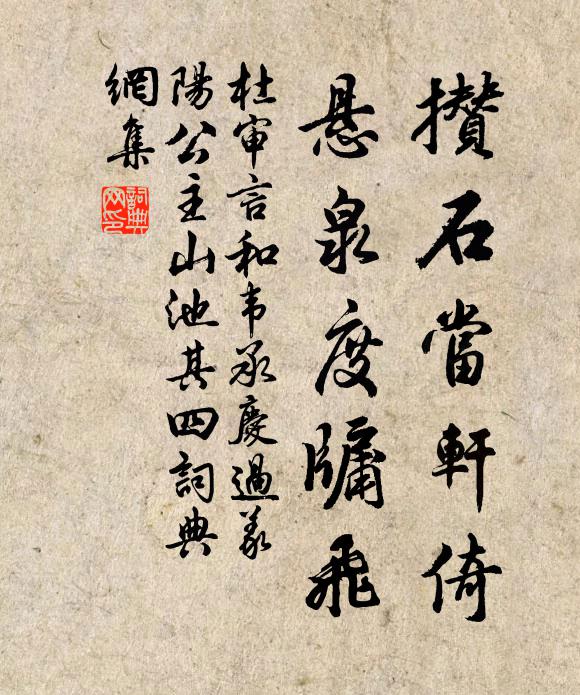 攅石當軒倚
悬泉度牖飛
杜审言和韦承慶過義
陽公主山池其四詞典
網集
詞典
网印